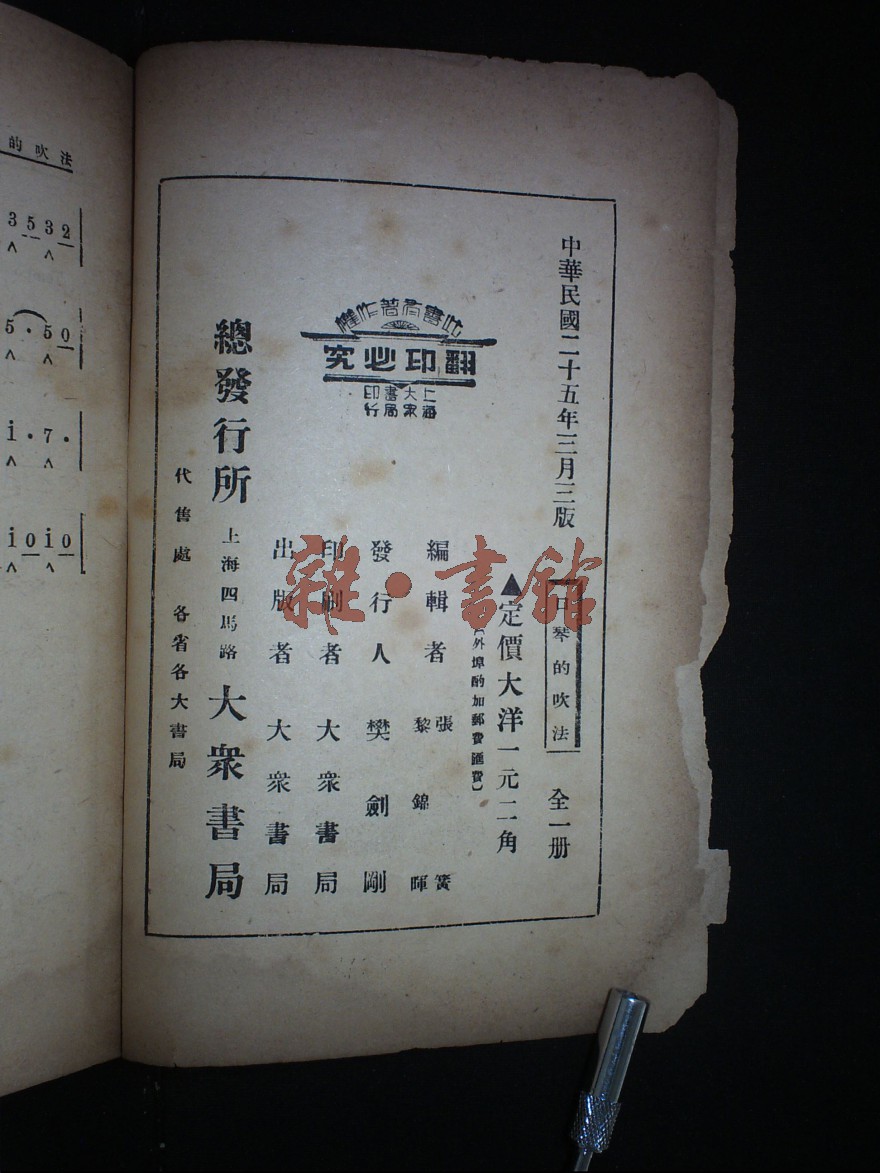 中華民國二十五年三月三版
口琴的吹法
全一册
▲定價大洋一元二角
【外埠酌加郵費匯費】
編輯者 張簧 黎錦暉
發行人 樊劍剛
印刷者 大衆書局
出版者 大衆書局
總發行所 上海四馬路 大衆書局
代售處 各省各大書局
此書有著作權
翻印必究
上海大衆書局印行
雜·書館
的吹法
3 5 3 2
5 · 5 0
i · 7 ·
i 0 i 0